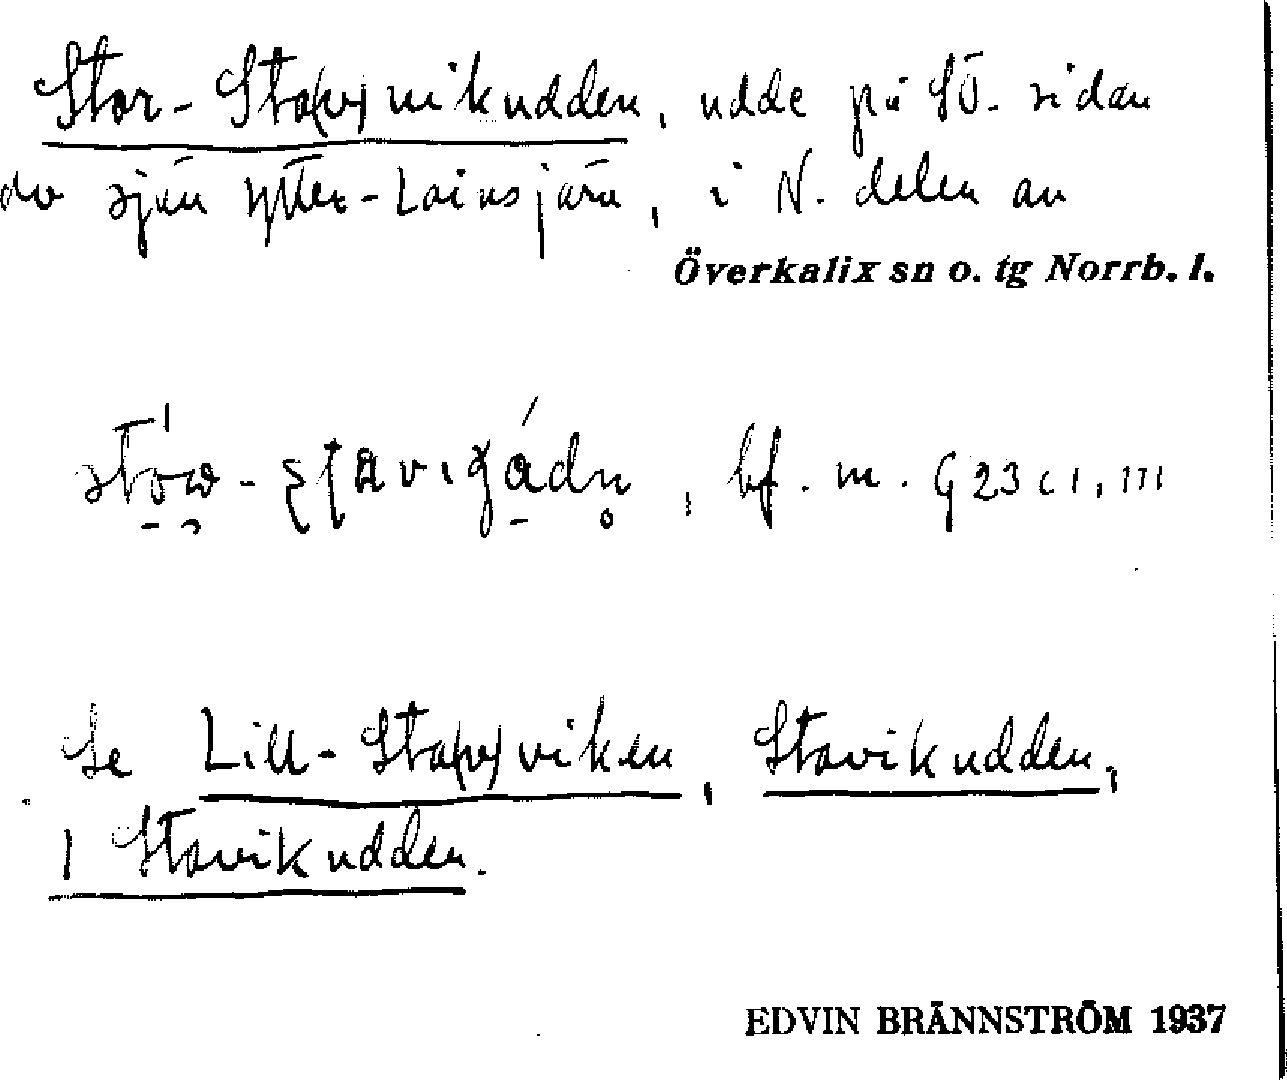 Stor-Sta(v)vikudden, udde på SÖ. sidan
av sjön Ytter-Lainsjärv, i N. delen av
Överkalix sn o. tg Norrb. l.
bf. m. G 23 c 1, III
Se Lill-Sta(v)viken, Stavikudden,
1 Stavikudden.
EDVIN BRÄNNSTRÖM 1937